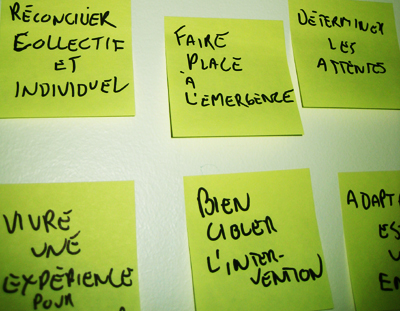 RÉCONCILIER
COLLECTIF
ET
INDIVIDUEL
FAIRE
PLACE
À
L'ÉMERGENCE
DÉTERMINER
LES
ATTENTES
VIVRE
UNE
EXPÉRIENCE
POUR
BIEN
CIBLER
L'INTER-
VENTION
ADAPT
ES